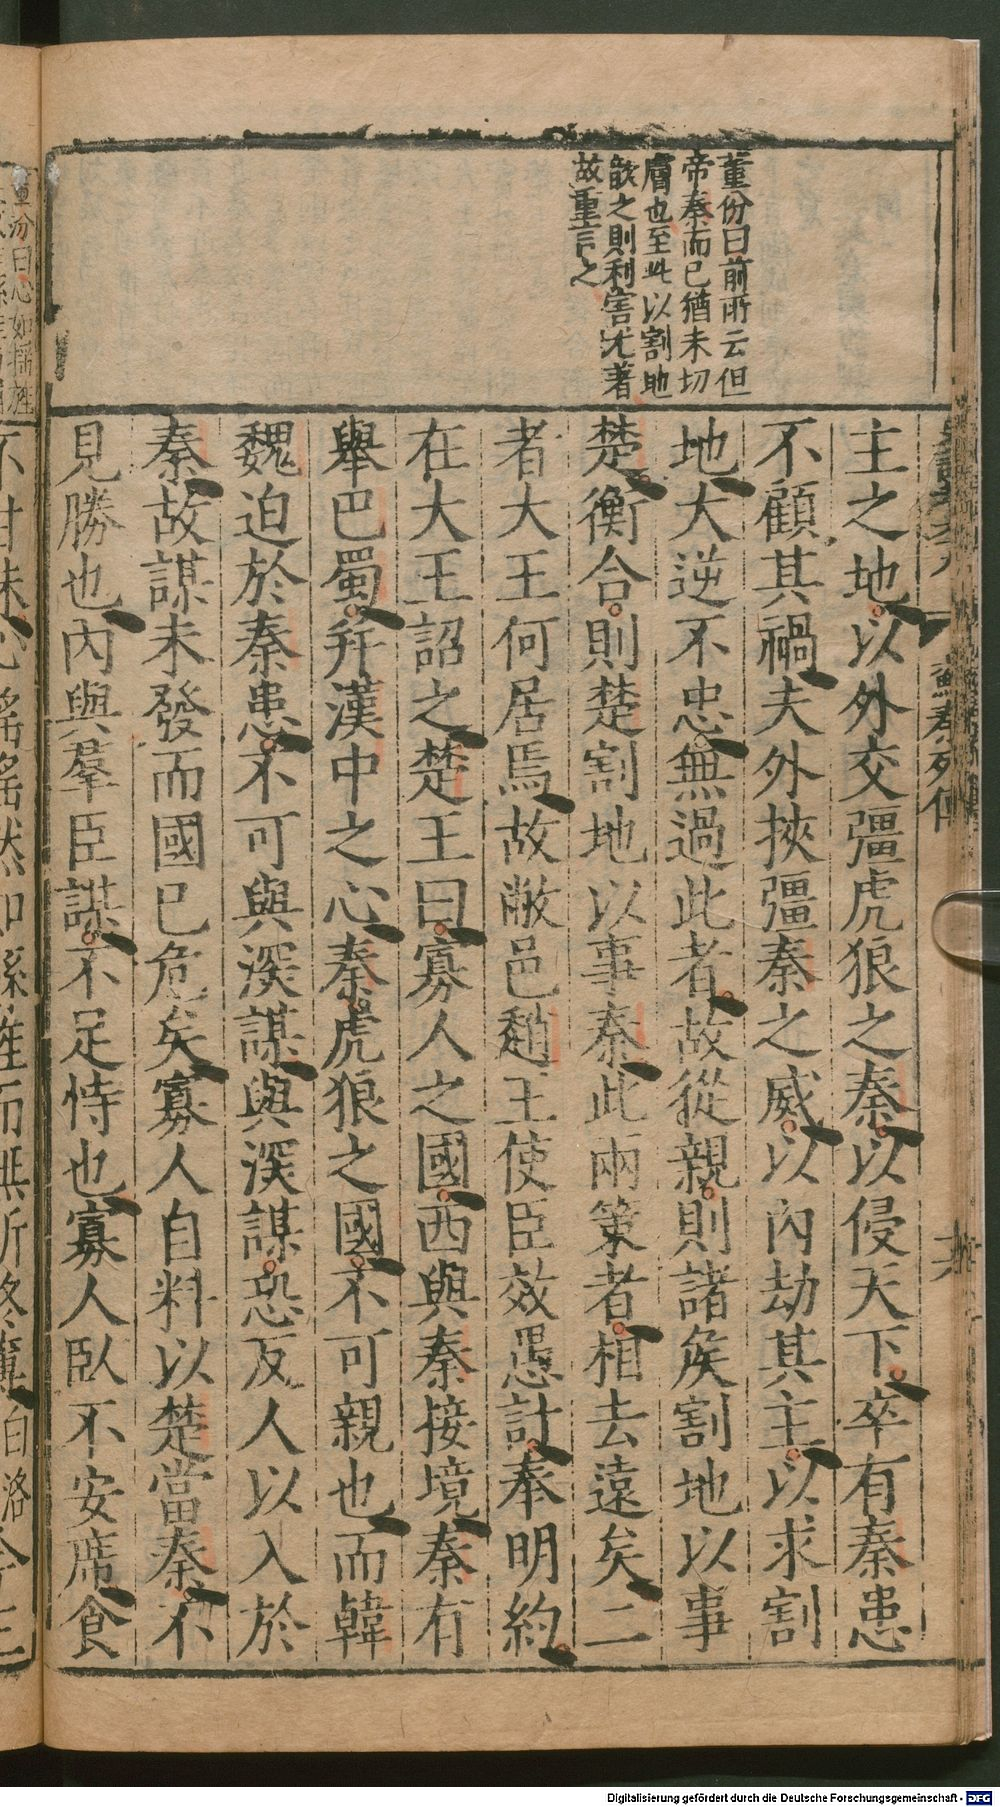 董份曰前所云但
帝秦而已猶未切
膚也至此以割地
歆之則利害尤著
故重言之
主之地以外交彊虎狼之秦以侵天下卒有秦患
不顧其禍夫外挾彊秦之威以內劫其主以求割
地大逆不忠無過此者故從親則諸矦割地以事
楚衡合則楚割地以事秦此兩策者相去遠矣二
者大王何居焉故敝邑趙王使臣效愚計奉明約
在大王詔之楚王曰寡人之國西與秦接境秦有
舉巴蜀幷漢中之心秦虎狼之國不可親也而韓
魏迫於秦患不可與深謀與深謀恐反人以入於
秦故謀未發而國已危矣寡人自料以楚當秦不
見勝也內與羣臣謀不足恃也寡人臥不安席食
蘇秦列傳
Digitalisierung gefördert durch die Deutsche Forschungsgemeinschaft - DFG